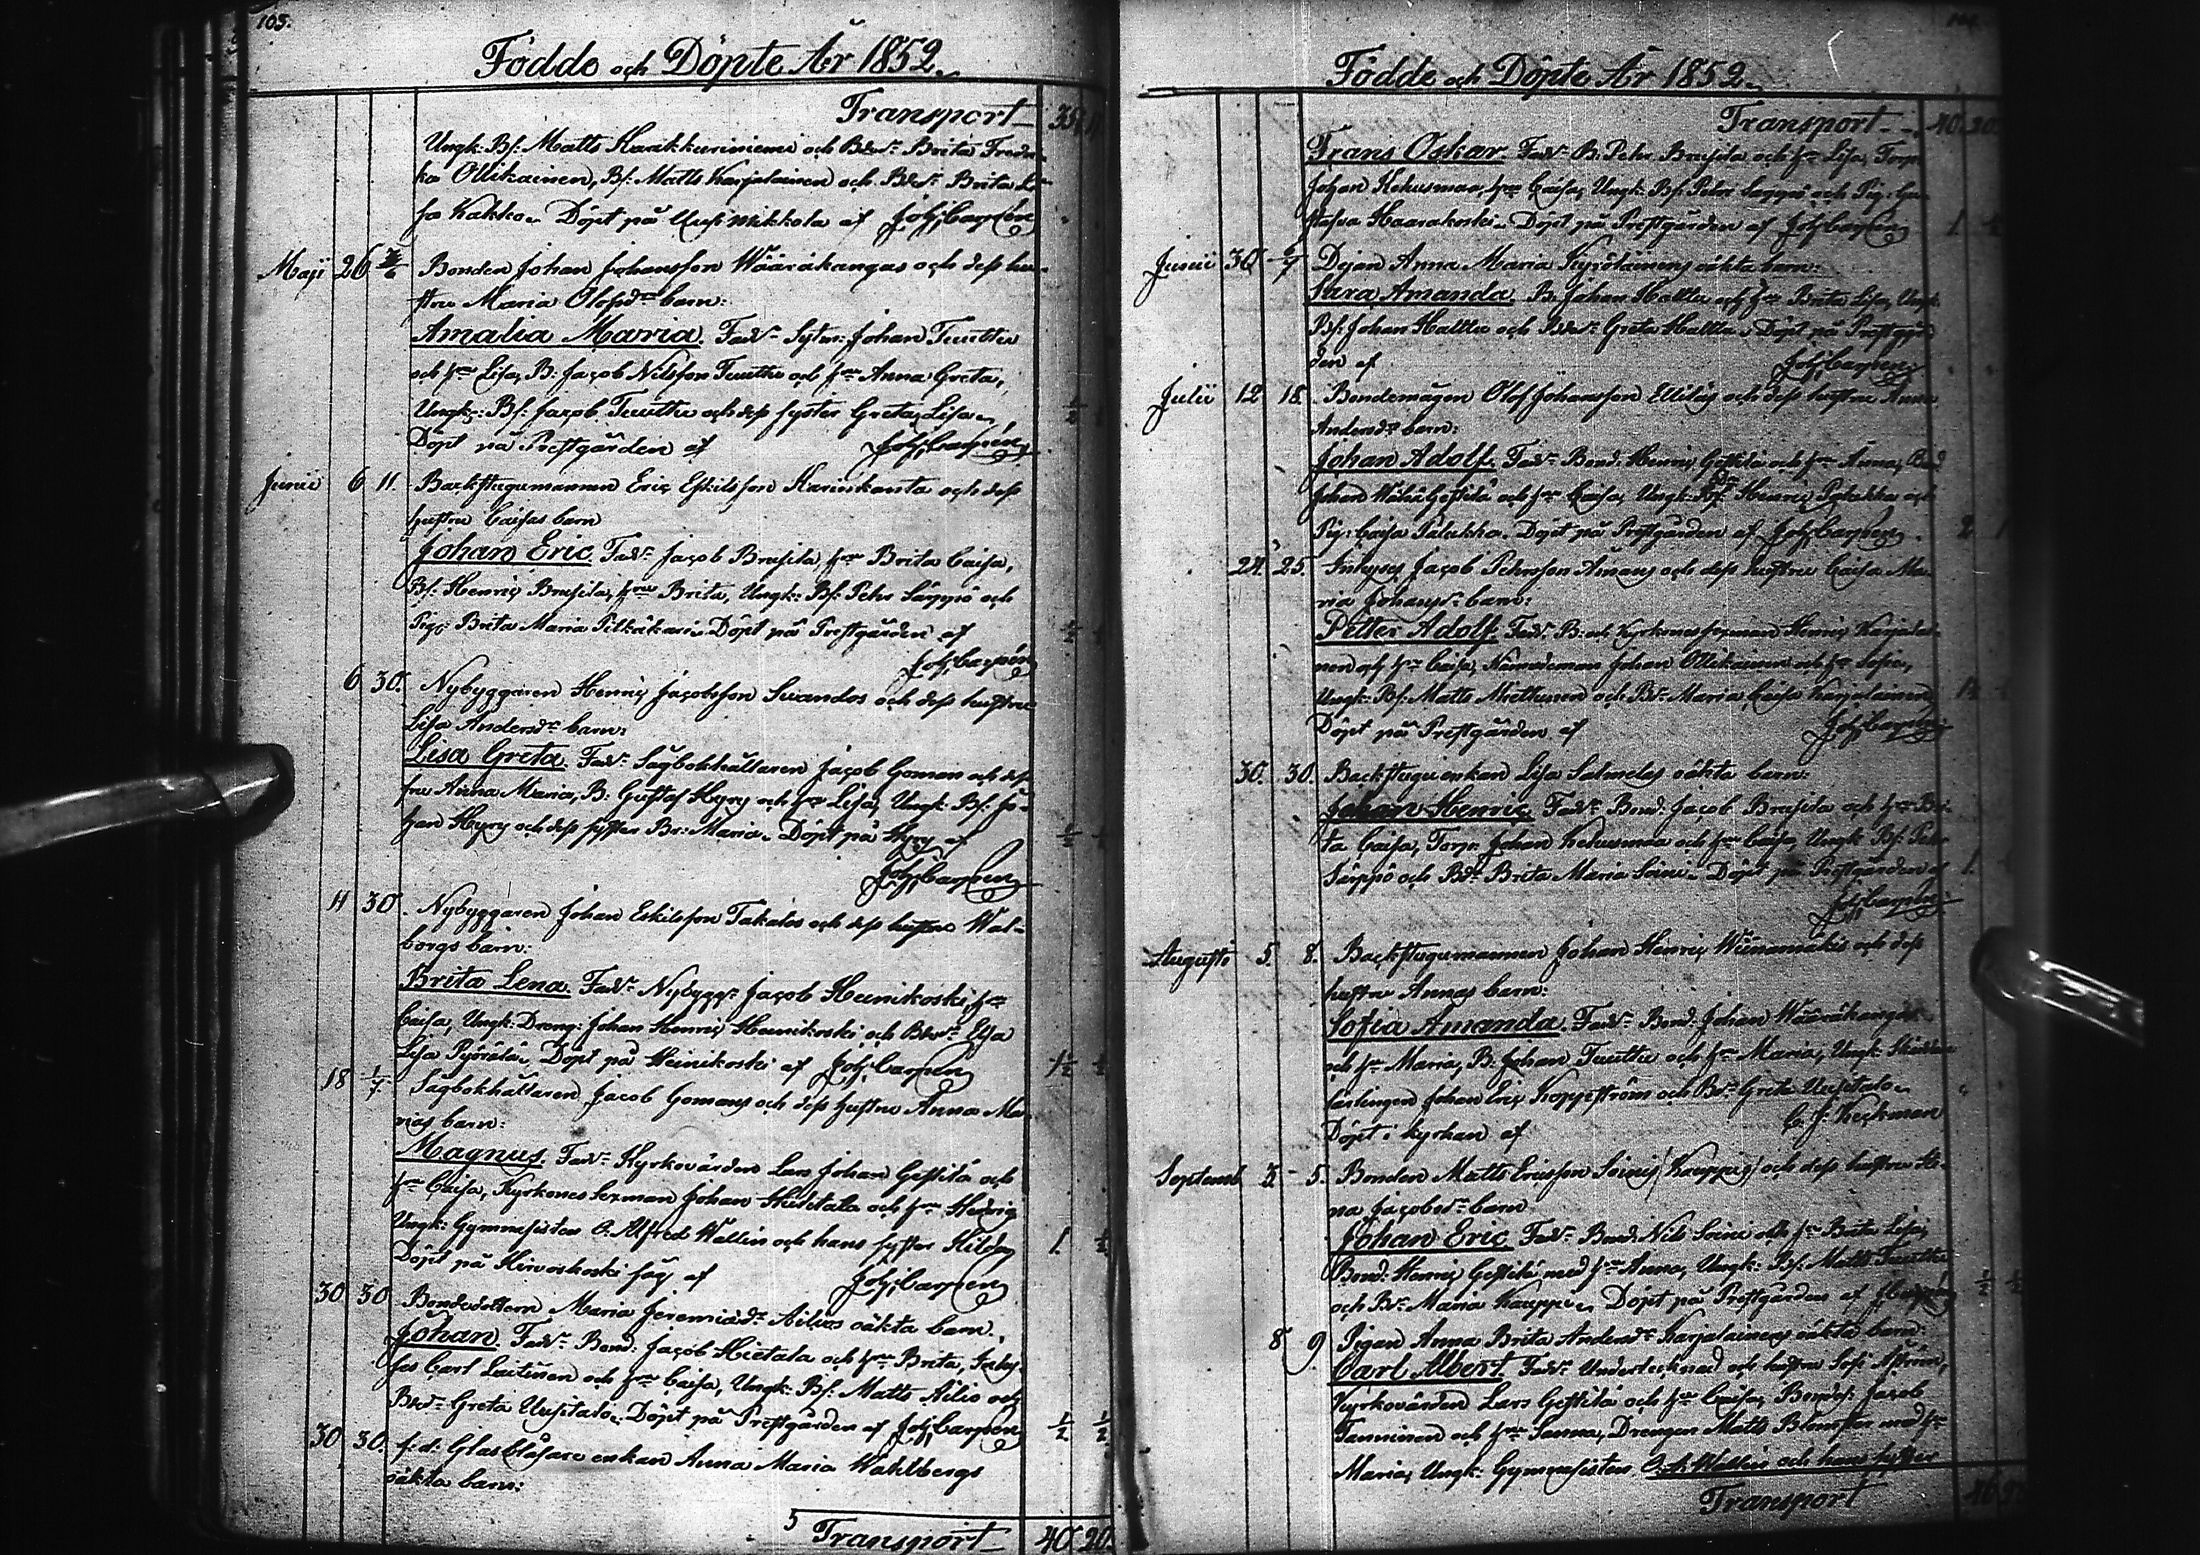 103.
Födde och Döpte År 1852.
Transport
Ungk: Bs: Matts och Brita Fredri-
ka Ollikainen, Bs: Matts Karjalainen och Brita Li-
sa Kakko. Döpt på Uusimikkola af Joh: Carpén
Maji 26 2/6 Bonden Johan Johansson Wääräkangas och dess hu-
stru Maria Olofsdr barn:
Amalia Maria. Fadr Johan Tuuttu
och hru Lisa, B: Jacob Nilsson Tuuttu och hru Anna Greta,
Ungk: Bs: Jacob Tuuttu och dess syster Greta Lisa. 1/2
Döpt på Prestgården af Joh: Carpén
Junii 6 11. Backstugumannen Eric Eskilsson Karinkanta och dess
hustru Caisas barn
Johan Eric. Fadr Jacob Brusila, hru Brita Caisa,
Bs: Henric Brusila, hru Brita, Ungk: Bs: Petter Särppö och
Pig: Brita Maria Pitkäkari. Döpt på Prestgården af 1/2
Joh: Carpén
6 30. Nybyggaren Henric Jacobsson Suandos och dess hustru
Lisa Andersdr barn:
Lisa Greta. Fadr Sågbokhållaren Jacob Goman och dess
fru Anna Maria, B: Gustaf Hyry och hru Lisa, Ungk: Bs: Jo-
han Hyry och dess syster Br: Maria. Döpt på Hyry af 1/2
Joh: Carpén
11 30. Nybyggaren Johan Eskilsson Takalos och dess hustru Wal-
borgs barn:
Brita Lena. Fadr Nybyggr Jacob Heinikoski, hru
Caisa, Ungk: Dreng: Johan Henric Heinikoski och
Lisa Pyörälä. Döpt på Heinikoski af Joh: Carpén 1 1/2
18 1/7 Sågbokhållaren Jacob Gomans och dess hustru Anna Ma-
rias barn:
Magnus. Fadr Kyrkovärden Lars Johan Gestilä och
hru Caisa, Kyrkones Sexman Johan och hru Hedvig
Ungk: Gymnasisten O. Alfred Wallin och hans syster Hilda, 1.
Döpt på såg af Joh: Carpén
30 30. Bondedottern Maria Jeremiædr Ailios oäkta barn.
Johan. Fadr Bond: Jacob Hietala och hru Brita, Inhy-
ses Carl Laitinen och hru Caisa, Ungk: Bs: Matts Ailio och
Greta Uusitalo. Döpt på Prestgården af Joh: Carpén 1/2 1/2
30 30. f: d: Glasblåsare enkan Anna Maria Wahlbergs
oäkta barn:
5 Transport 40 20.
104.
Födde och Döpte År 1852.
Transport 40. 20.
Frans Oskar. Fadr B: Petr Brusila och hru Lisa, Torpr
Johan Kehusmaa, hru Caisa, Ungk: Bs: Petter Särppö och Pig: Gu-
stafva Haarakoski. Döpt på Prestgården af Joh: Carpén 1.
Junii 30 Anna Maria oäkta barn:
Sara Amanda. B: Johan Hallta och hru Brita Lisa, Ungk:
Bs: Johan Hallta och Greta Hallta. Döpt på Prestgår-
den af Joh: Carpén
Julii 12 18. Bondemågen Olof Johansson och dess hustru Anna
Andersdr barn:
Johan Adolf. Fadr Bond: Henric Gestilä och hru Anna, Bond
Johan och hru Caisa, Ungk: Bs: Henric och
Pig: Caisa Palukka. Döpt på Prestgården af Joh: Carpén. 2
24. 25. Inhyses Jacob Petersson och dess hustru Caisa Ma-
ria Johansdr barn:
Petter Adolf. Fadr B: och Kyrkones sexman Henric Karjalai-
nen och hru Caisa, Nämndeman Johan Ollikainen och hru Sofia,
Ungk: Bs: Matts Miettunen och Br: Maria Caisa Karjalainen
Döpt på Prestgården af Joh: Carpén
30. 30. Backstuguenkan Lisa Salmelas oäkta barn:
Johan Henric. Fadr Bond: Jacob Brusila och hru Bri-
ta Caisa, Torpr Johan Kehusmaa och hru Caisa, Ungk: Bs: Petr
Särppö och Bdr Brita Maria Soini. Döpt på Prestgården af 1.
Joh: Carpén
Augusti 5. 8. Backstugumannen Johan Henric Wiinamäkis och dess
hustru Annas barn:
Sofia Amanda. Fadr Bond: Johan Wääräkangas
och hru Maria, B: Johan Tuuttu och hru Maria, Ungk:
lärlingen Johan Eric Koppström och Br: Greta Uusitalo.
Döpt i kyrkan af C. J. Heckman
Septemb 3 5. Bonden Matts Ericsson Soinis (Kauppas) och dess hustru He-
na Jacobsdr barn
Johan Eric. Fadr Bond: Nils Soini och hru Brita Lisa,
Bond: Henric Gestilä med hru Anna, Ungk: Bs: Matts Tuuttu
och Br: Maria Kauppi. Döpt på Prestgården af J Carpén 1/2 1/2
8 9 Pigan Anna Brita Andersdr Karjalainens oäkta barn:
Carl Albert. Fadr Undertecknad och hustru Sofi Aström,
Kyrkovärden Lars Gestilä och hru Caisa, Bonds: Jacob
Tanninen och hru Sanna, Drengen Matts Blomster med hru
Maria, Ungk: Gymnasisten O. A. Wallin och hans syster
Transport 46